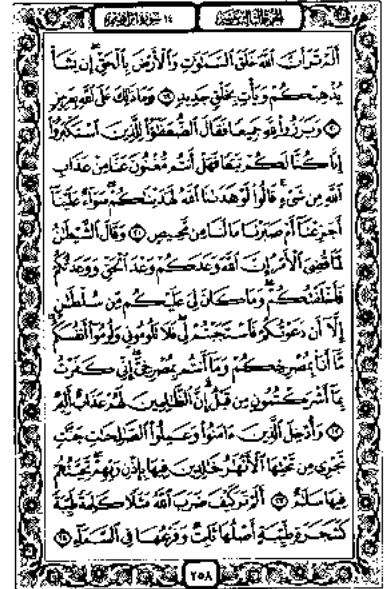 الجزء الثالث عشر ١٤ سورة ابراهيم
أَلَمْ تَرَ أَنَّ ٱللَّهَ خَلَقَ ٱلسَّمَٰوَٰتِ وَٱلْأَرْضَ بِٱلْحَقِّ إِن يَشَأْ
يُذْهِبْكُمْ وَيَأْتِ بِخَلْقٍ جَدِيدٍ ١٩ وَمَا ذَٰلِكَ عَلَى ٱللَّهِ بِعَزِيزٍ
٢٠ وَبَرَزُوا۟ لِلَّهِ جَمِيعًا فَقَالَ ٱلضُّعَفَٰٓؤُا۟ لِلَّذِينَ ٱسْتَكْبَرُوٓا۟
إِنَّا كُنَّا لَكُمْ تَبَعًا فَهَلْ أَنتُم مُّغْنُونَ عَنَّا مِنْ عَذَابِ
ٱللَّهِ مِن شَىْءٍ قَالُوا۟ لَوْ هَدَىٰنَا ٱللَّهُ لَهَدَيْنَٰكُمْ سَوَآءٌ عَلَيْنَآ
أَجَزِعْنَآ أَمْ صَبَرْنَا مَا لَنَا مِن مَّحِيصٍ ٢١ وَقَالَ ٱلشَّيْطَٰنُ
لَمَّا قُضِىَ ٱلْأَمْرُ إِنَّ ٱللَّهَ وَعَدَكُمْ وَعْدَ ٱلْحَقِّ وَوَعَدتُّكُمْ
فَأَخْلَفْتُكُمْ وَمَا كَانَ لِىَ عَلَيْكُم مِّن سُلْطَٰنٍ
إِلَّآ أَن دَعَوْتُكُمْ فَٱسْتَجَبْتُمْ لِى فَلَا تَلُومُونِى وَلُومُوٓا۟ أَنفُسَكُم
مَّآ أَنَا۠ بِمُصْرِخِكُمْ وَمَآ أَنتُم بِمُصْرِخِىَّ إِنِّى كَفَرْتُ
بِمَآ أَشْرَكْتُمُونِ مِن قَبْلُ إِنَّ ٱلظَّٰلِمِينَ لَهُمْ عَذَابٌ أَلِيمٌ
٢٢ وَأُدْخِلَ ٱلَّذِينَ ءَامَنُوا۟ وَعَمِلُوا۟ ٱلصَّٰلِحَٰتِ جَنَّٰتٍ
تَجْرِى مِن تَحْتِهَا ٱلْأَنْهَٰرُ خَٰلِدِينَ فِيهَا بِإِذْنِ رَبِّهِمْ تَحِيَّتُهُمْ
فِيهَا سَلَٰمٌ ٢٣ أَلَمْ تَرَ كَيْفَ ضَرَبَ ٱللَّهُ مَثَلًا كَلِمَةً طَيِّبَةً
كَشَجَرَةٍ طَيِّبَةٍ أَصْلُهَا ثَابِتٌ وَفَرْعُهَا فِى ٱلسَّمَآءِ ٢٤
٢٥٨